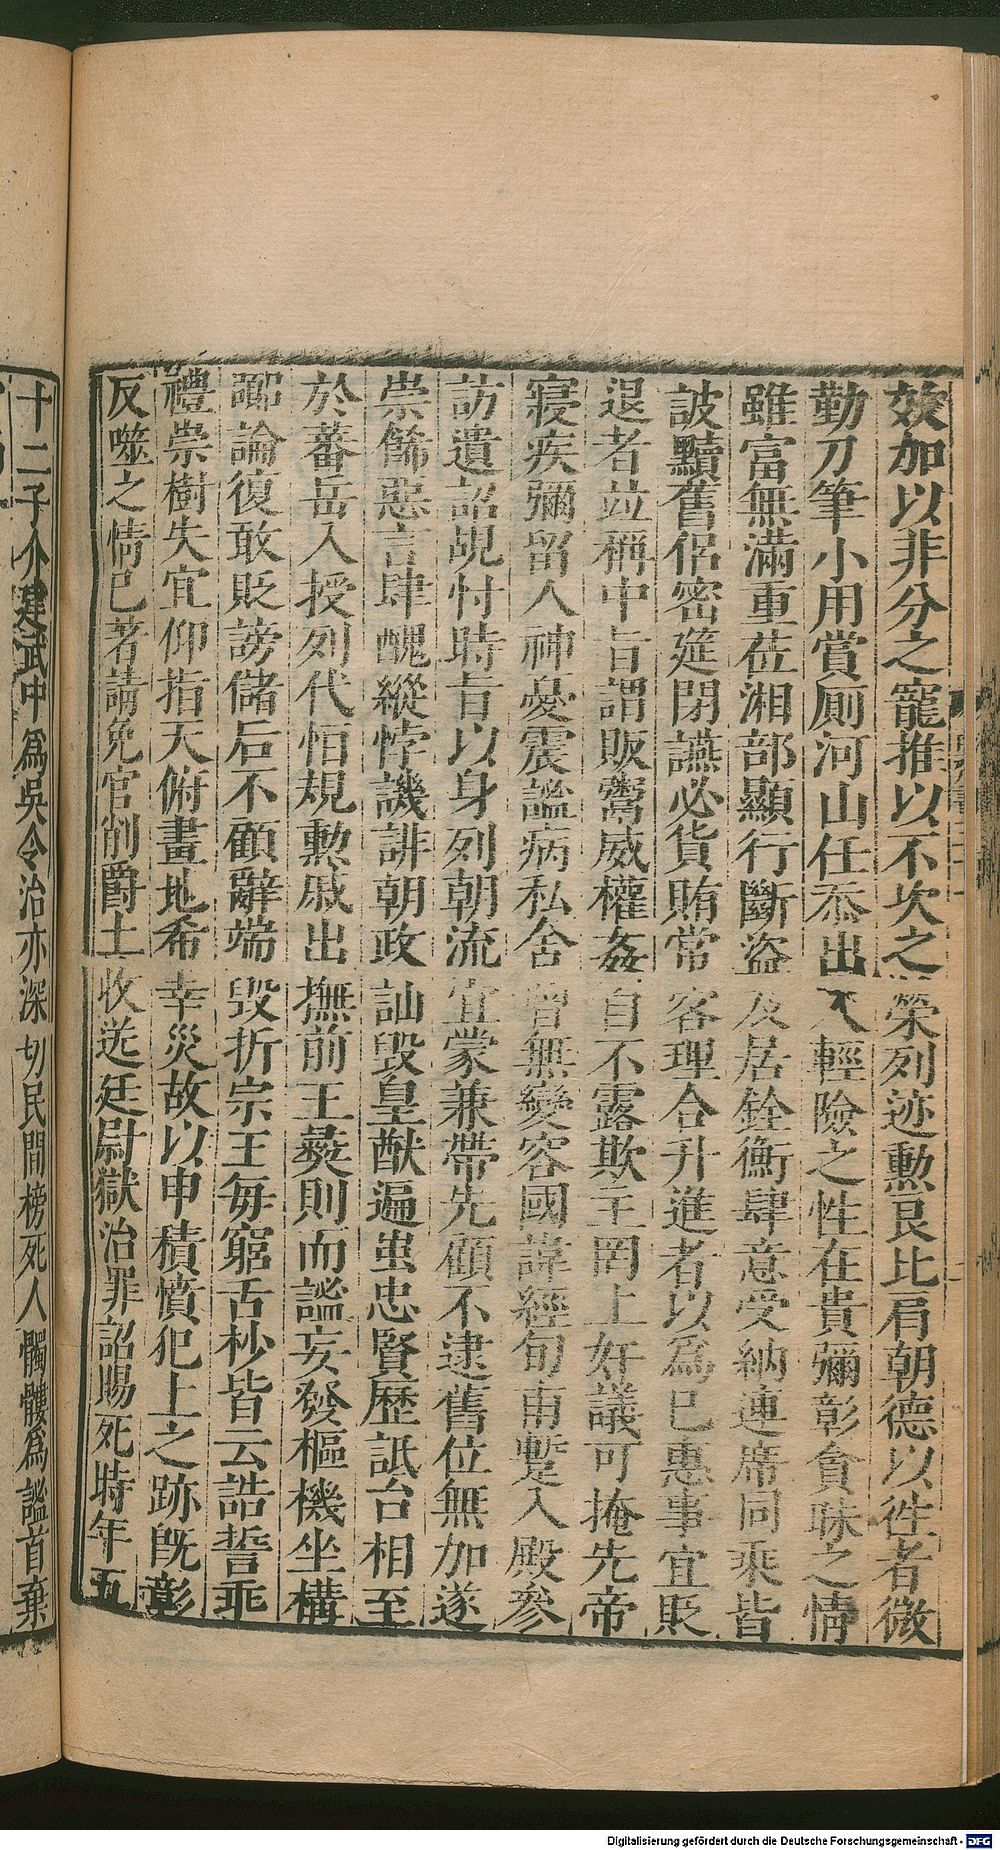 效加以非分之寵推以不次之榮列迹勲良比肩朝德以徃者微
勤刀筆小用賞厠河山任忝出入輕險之性在貴彌彰貪昧之情
雖富無滿重莅湘部顯行斷盗及居銓衡肆意受納連席同乘皆
詖黷舊侣密筵閉讌必貨賄常客理合升進者以爲巳惠事宜貶
退者竝稱中旨謂販鬻威權姦自不露欺主罔上奸議可掩先帝
寢疾彌留人神憂震謐病私舍曾無變容國諱經旬甫蹔入殿參
訪遺詔覘忖時旨以身列朝流宜蒙兼帶先顧不逮舊位無加遂
崇飾惡言肆醜縱悖譏誹朝政訕毁皇猷遍蚩忠賢歷詆台相至
於蕃岳入授列代恒規勲戚出撫前王彞則而謐妄發樞機坐構
嚻論復敢貶謗儲后不顧辭端毁折宗王每窮舌杪皆云誥誓乖
禮崇樹失宜仰指天俯畫地希幸災故以申積憤犯上之跡旣彰
反噬之情已著請免官削爵土收送廷尉獄治罪詔賜死時年五
十二子介建武中爲吳令治亦深切民間榜死人髑髏爲謐首棄
Digitalisierung gefördert durch die Deutsche Forschungsgemeinschaft - DFG